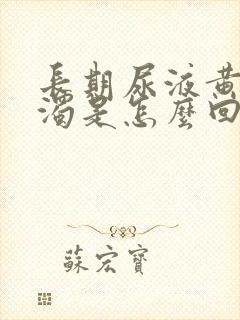 長期尿液黃
濁是怎麼回
蘇宏寶